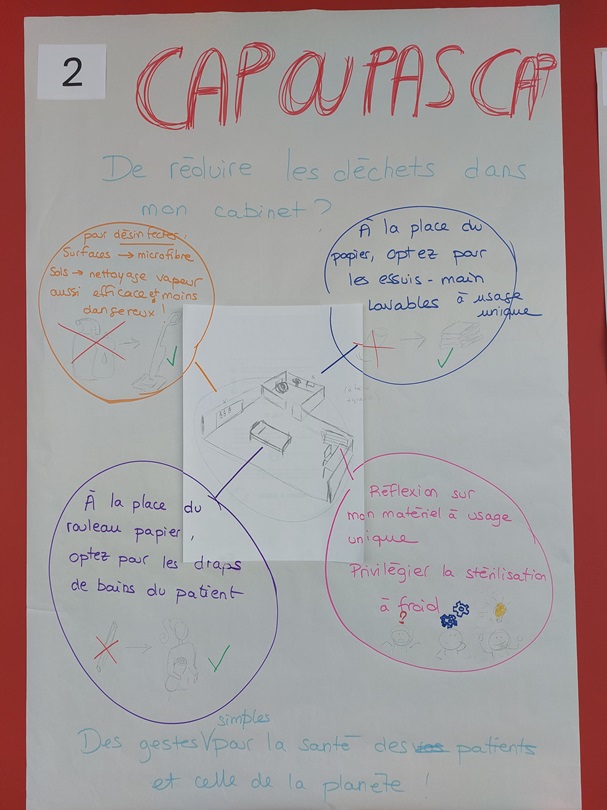 2
CAP OU PAS CAP
De réduire les déchets dans
mon cabinet ?
pour désinfecter :
Surfaces → microfibre
Sols → nettoyage vapeur
aussi efficace et moins
dangereux !
À la place du
papier, optez pour
les essuis-main
lavables à usage
unique
À la place du
rouleau papier,
optez pour les draps
de bains du patient
Réflexion sur
mon matériel à usage
unique
Privilégier la stérilisation
à froid
?
simples
Des gestes √ pour la santé des patients
et celle de la planète !